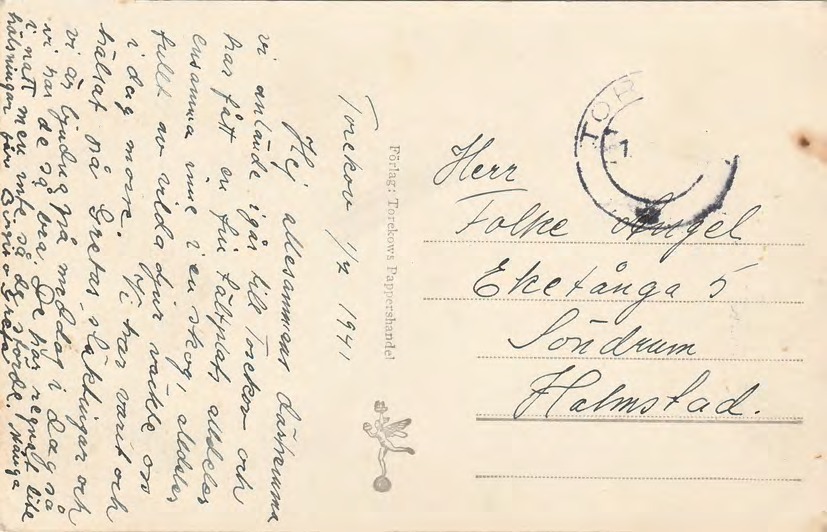 Torekov 1/7 1941
Hej allesammens därhemma
vi anlände igår till Torekov och
har fått en fin tältplats alldeles
ensamma inne i en skog, alldeles
fullt av vilda djur väckte oss
i dag morse. Vi har varit och
hälsat på Gretas släktingar och
vi är bjudna på middag i dag så
vi har de så bra. De har regnat lite
i natt men inte så de störde. Många
hälsningar från Birgit o Greta
Förlag: Torekovs Pappershandel
TOR
Herr
Folke Angel
Eketånga 5
Söndrum
Halmstad.